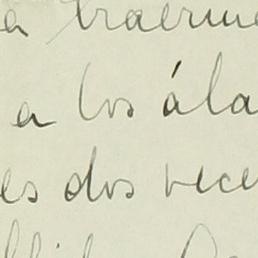 a traerme
a los ála
es dos vece